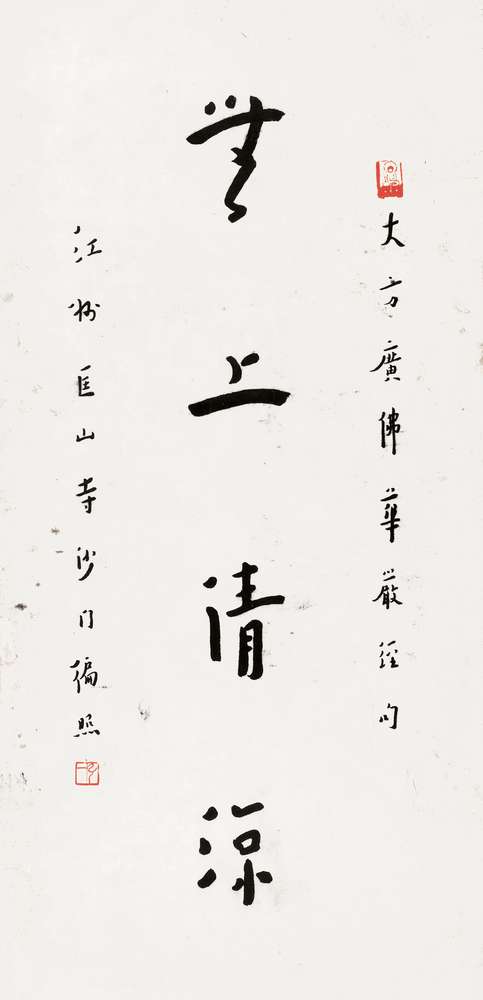 大方廣佛華嚴經句
無上清涼
江州匡山寺沙门徧照